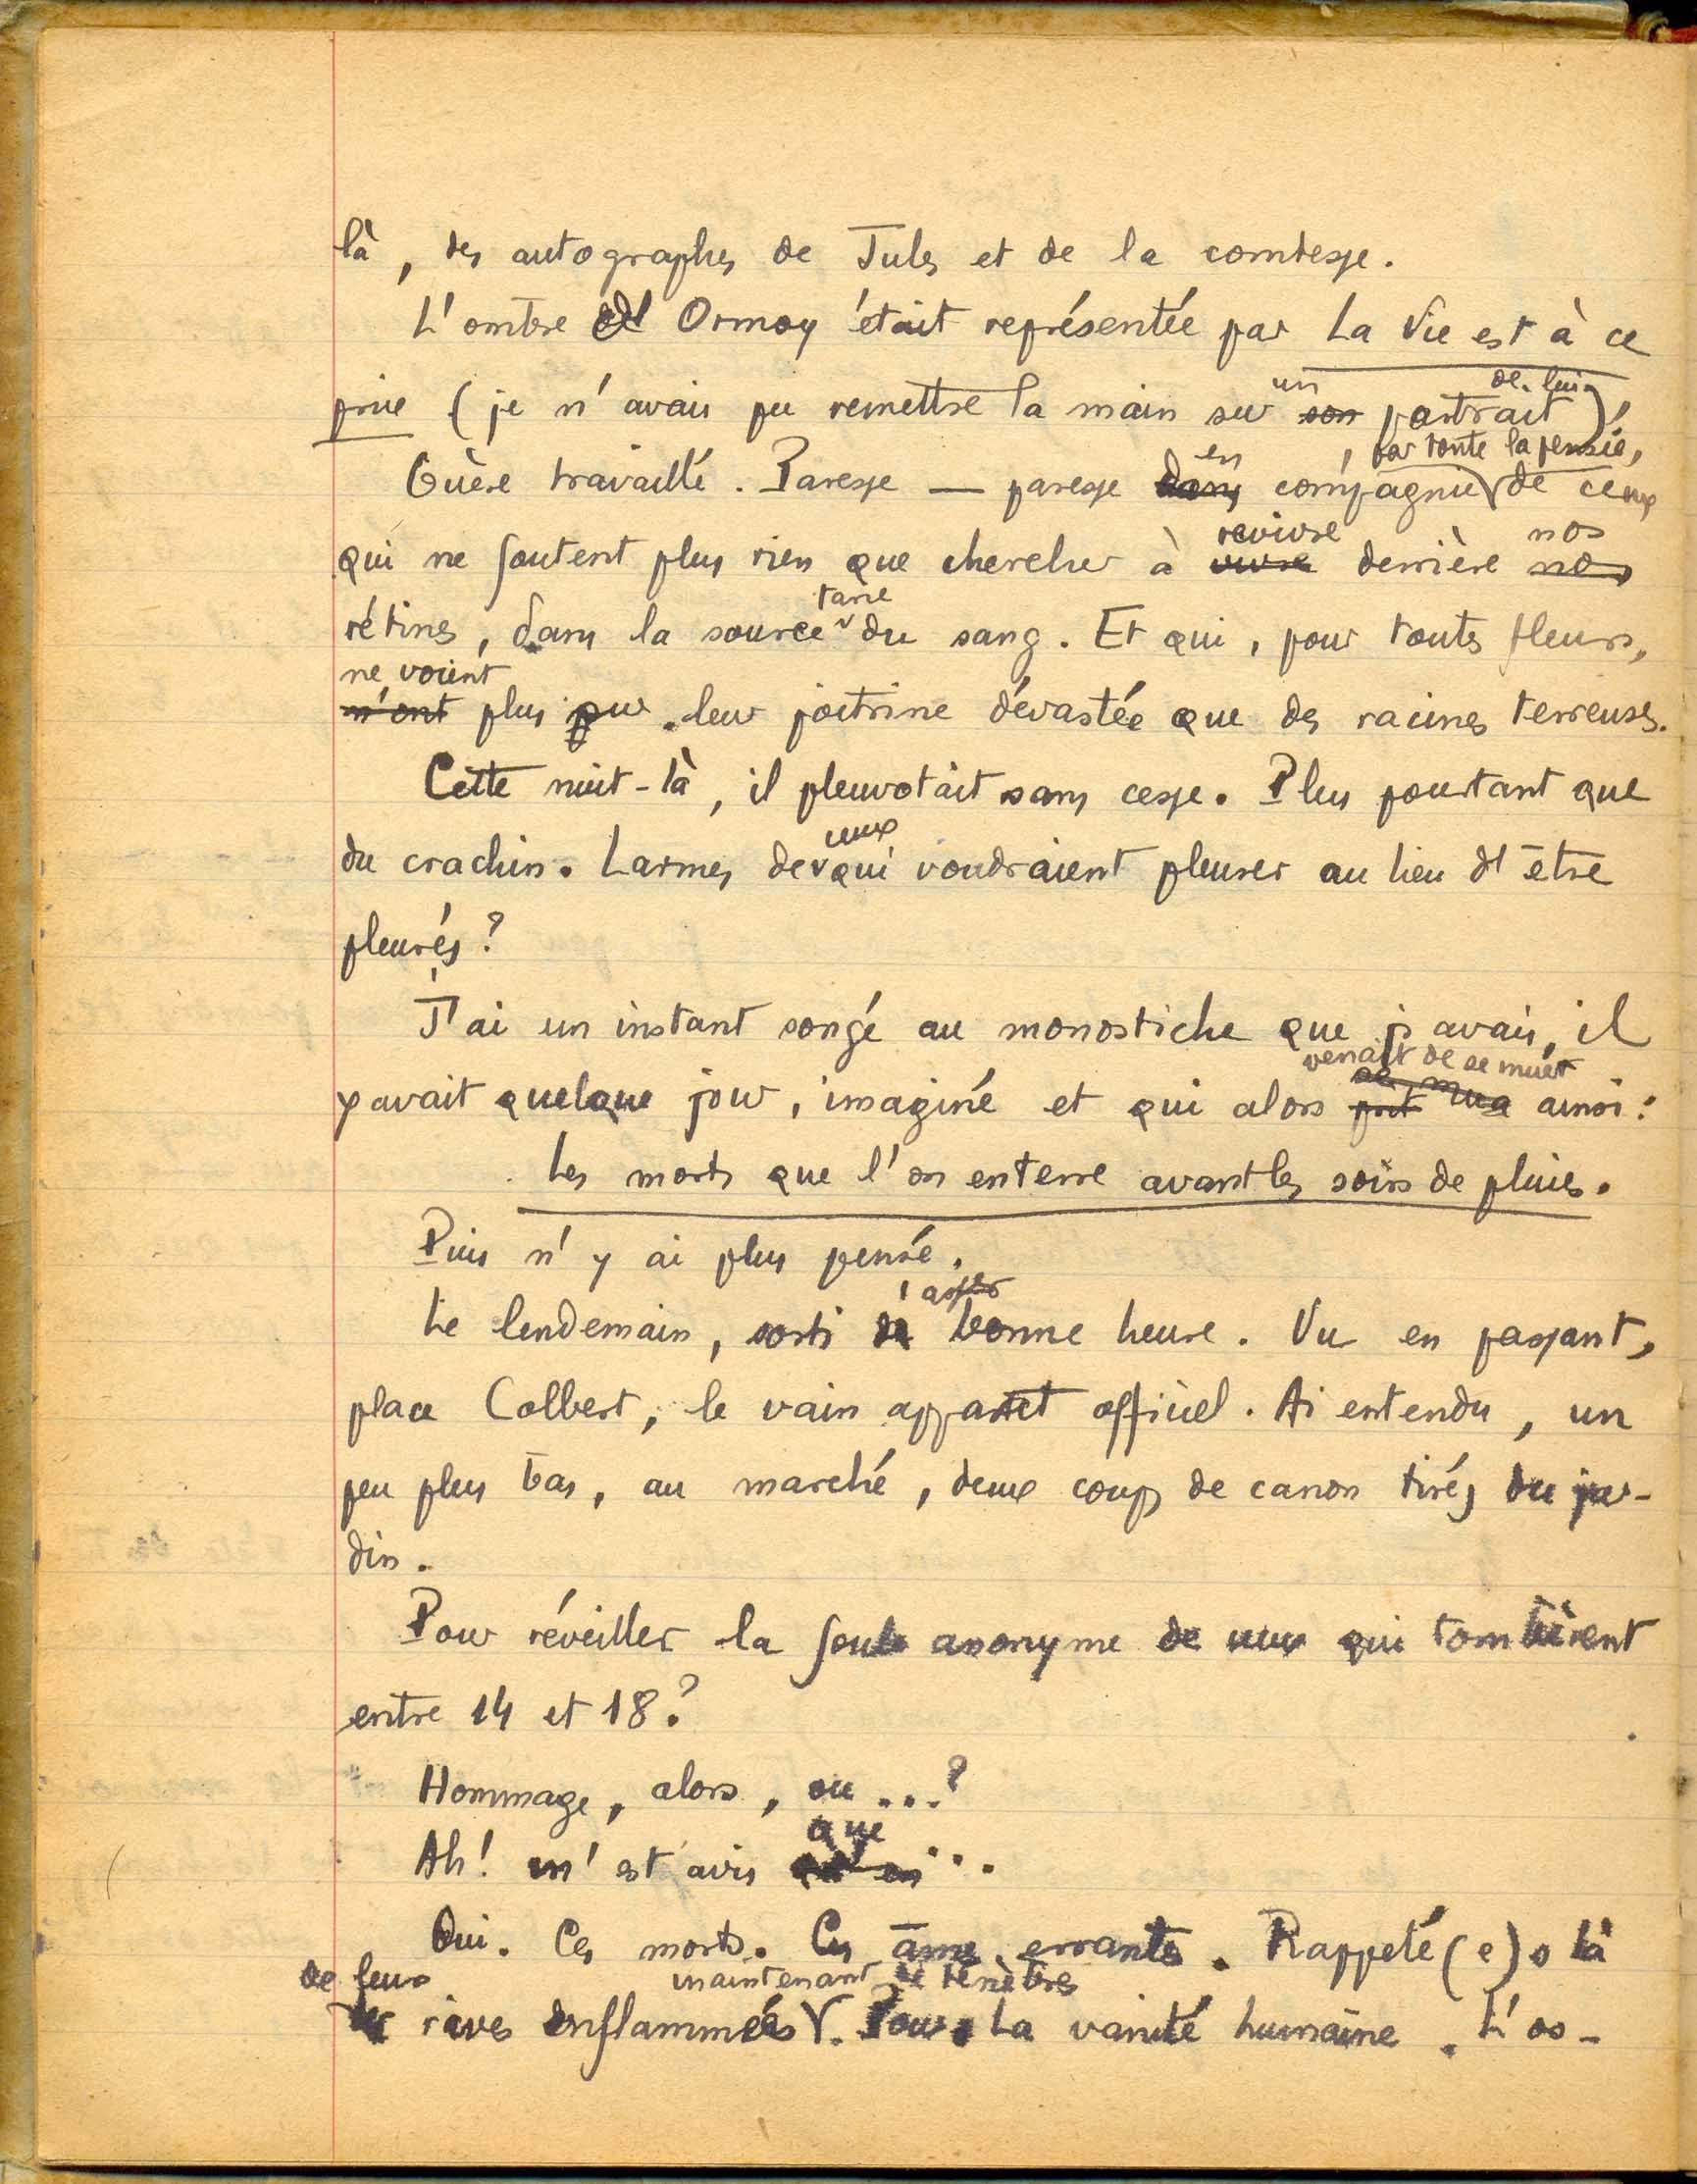 là, des autographes de Jules et de la comtesse.
L'ombre d'Ormoy était représentée par La Vie est à ce
un de lui
prix (je n'avais pu remettre la main sur son portrait).
en , par toute la pensée,
Guère travaillé. Paresse — paresse dans compagnie de ceux
revivre nos
qui ne foutent plus rien que chercher à vivre derrière nos
tarie
rétines, dans la source du sang. Et qui, pour toutes fleurs,
ne voient
n'ont plus sur leur poitrine dévastée que des racines terreuses.
Cette nuit-là, il pleuvotait sans cesse. Plus pourtant que
ceux
du crachin. Larmes de qui voudraient pleurer au lieu d'être
pleurés?
J'ai un instant songé au monostiche que j'avais, il
venait de se muer
se mua
y avait quelque jour, imaginé et qui alors prit ainsi:
Les morts que l'on enterre avant les soirs de pluies.
Puis n'y ai plus pensé.
assez
Le lendemain, sorti de bonne heure. Vu en passant,
place Colbert, le vain apparat officiel. Ai entendu, un
peu plus bas, au marché, deux coups de canon tirés du jar-
din.
Pour réveiller la foule anonyme de ceux qui tombèrent
entre 14 et 18?
Hommage, alors, ou ...?
que
Ah! m'est avis qu'on ...
Oui. Ces morts. Ces âmes errantes. Rappelé(e)s là
de leurs maintenant de ténèbres
rives enflammées. Pour La vanité humaine. L'os-